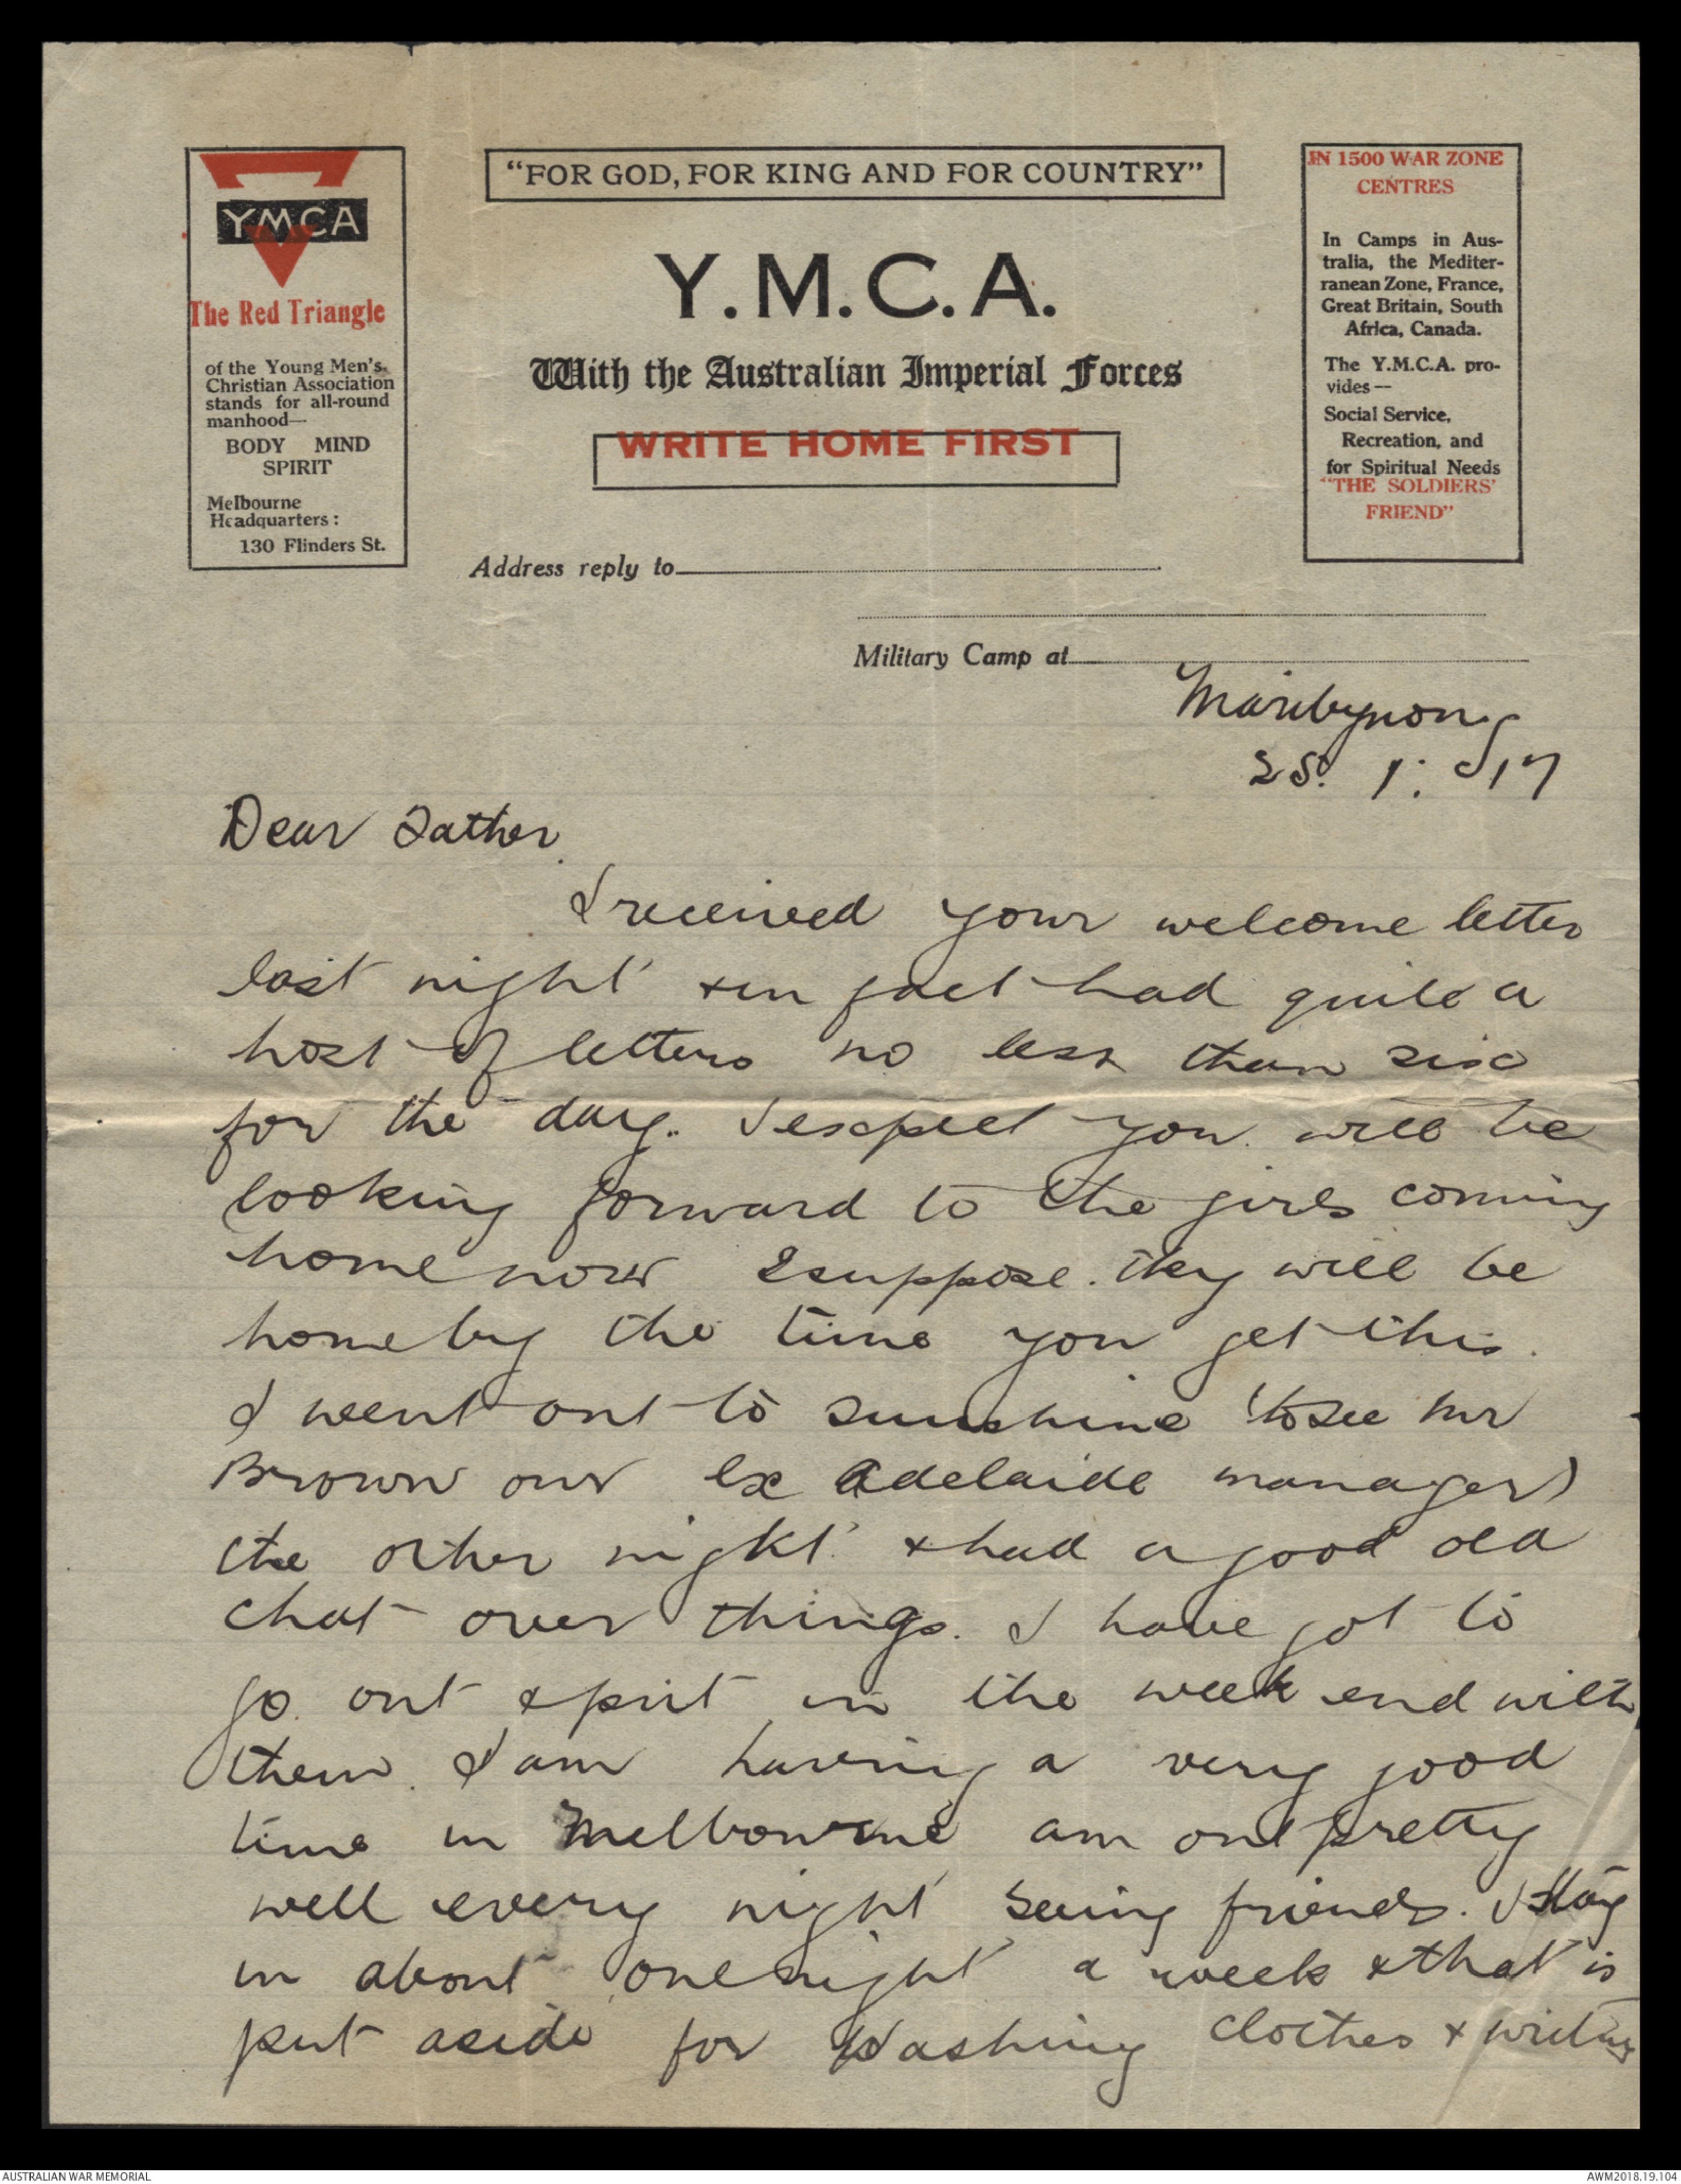 YMCA
The Red Triangle
of the Young Men's
Christian Association
stands for all-round
manhood—
BODY MIND
SPIRIT
Melbourne
Headquarters:
130 Flinders St.
"FOR GOD, FOR KING AND FOR COUNTRY"
Y.M.C.A.
With the Australian Imperial Forces
WRITE HOME FIRST
IN 1500 WAR ZONE
CENTRES
In Camps in Aus-
tralia, the Mediter-
ranean Zone, France,
Great Britain, South
Africa, Canada.
The Y.M.C.A. pro-
vides—
Social Service,
Recreation, and
for Spiritual Needs
"THE SOLDIERS'
FRIEND"
Address reply to
Military Camp at
Maribynong
25. 1. 17
Dear Father
I received your welcome letter
last night & in fact had quite a
host of letters no less than six
for the day. I expect you will be
looking forward to the girls coming
home now I suppose. they will be
home by the time you get this.
I went out to Sunshine to see Mr
Brown our ex Adelaide manager
the other night & had a good old
chat over things. I have got to
go out & put in the week end with
them. I am having a very good
time in Melbourne am out pretty
well every night seeing friends. I stay
in about one night a week & that is
put aside for Washing clothes & writing
AUSTRALIAN WAR MEMORIAL
AWM2018.19.104